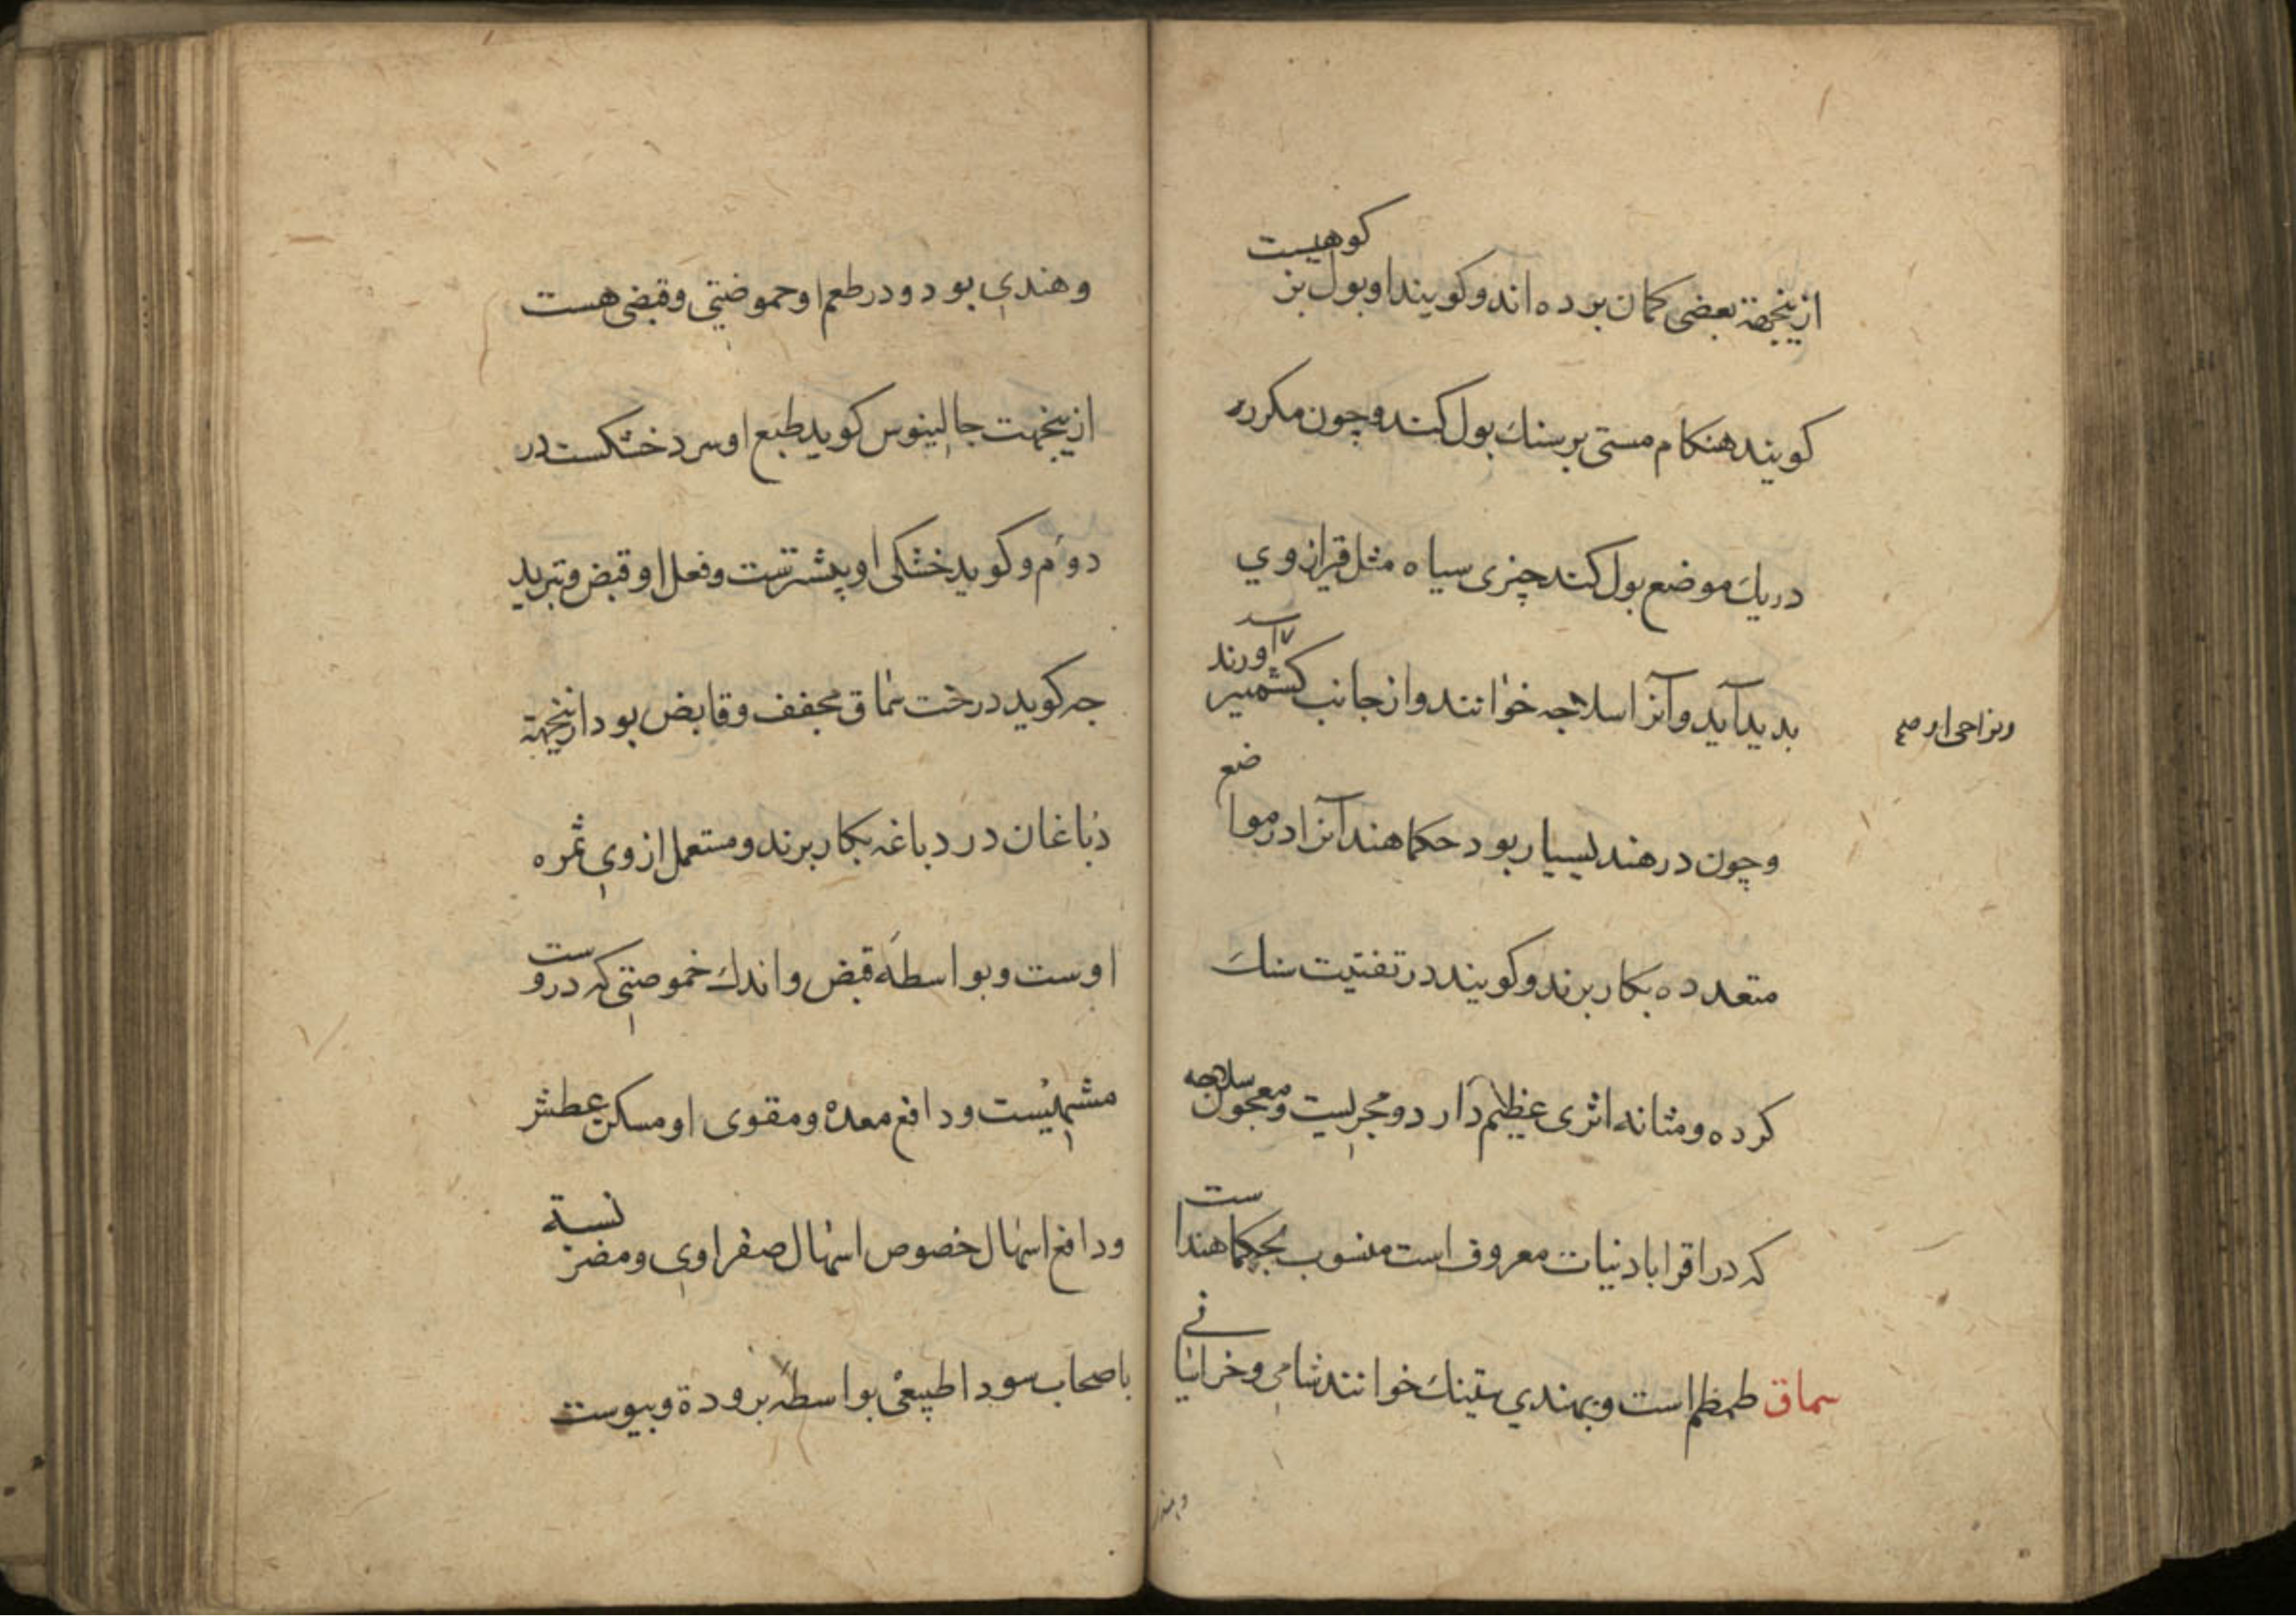 ازینجهة بعضی کمان برده اند و کویند او بول بز کوهیست
کویند هنکام مستی بر سنك بول کند و چون مکرر
در یك موضع بول کند چیزی سیاه مثل قیر از وي
بدید آید و آنرا سلاجه خوانند و از جانب کشمیر آورند
ونواحی او صح
و چون در هند بسیار بود حکما هند آنرا در مواضع
متعدده بکار برند و کویند در تفتیت سنك
کرده و مثانه اثری عظیم دارد و مجربیست و معجون سلاجه
که در اقرابادنیات معروف است منسوب بحکما هنداست
سماق طمطم است و بهندي تینك خوانند شامی و خراسانی
و هندی
و هندي بود و در طعم او حموضتی و قبضی هست
ازینجهت جالینوس کوید طبع او سرد خشکست در
دوم و کوید خشکی او بیشترست و فعل او قبض و تبرید
جه کوید درخت سماق مجفف و قابض بود ازینجهة
دباغان در دباغه بکار برند و مستعمل از وي ثمره
اوست و بواسطه قبض و اندك حموضتی که دروست
مشهیست و دافع معده و مقوی او مسکن عطش
و دافع اسهال خصوص اسهال صفراوي و مضر نسبة
باصحاب سودا طبیعی بواسطه برودة و یبوست